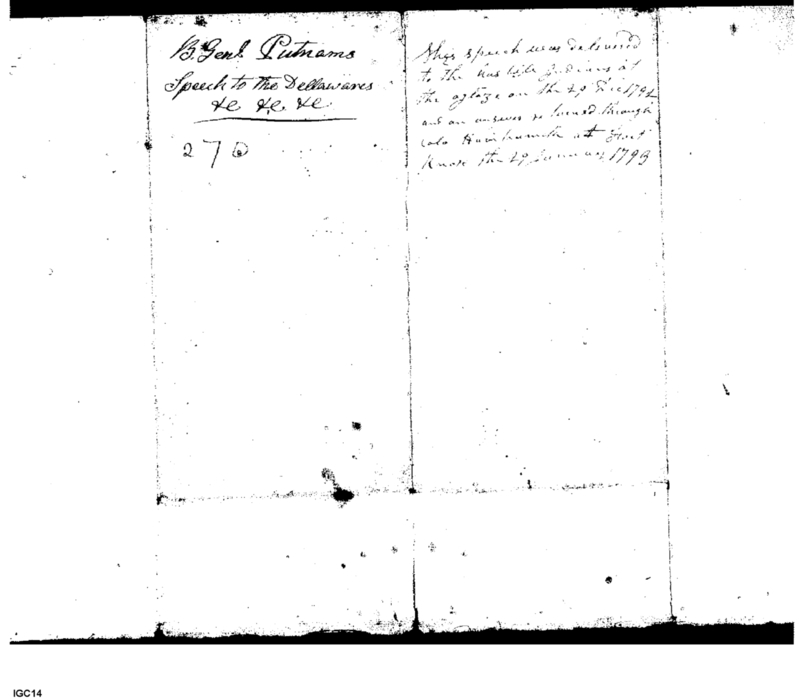 B. Genl. Putnams
Speech to the Dellawares
&c &c &c
270
This speech was delivered
to the hostile Indians at
the oglaze on the 29 Dec 1792
and an answer re turned through
Colo at Fort
Knox the 29 January 1793
IGC14